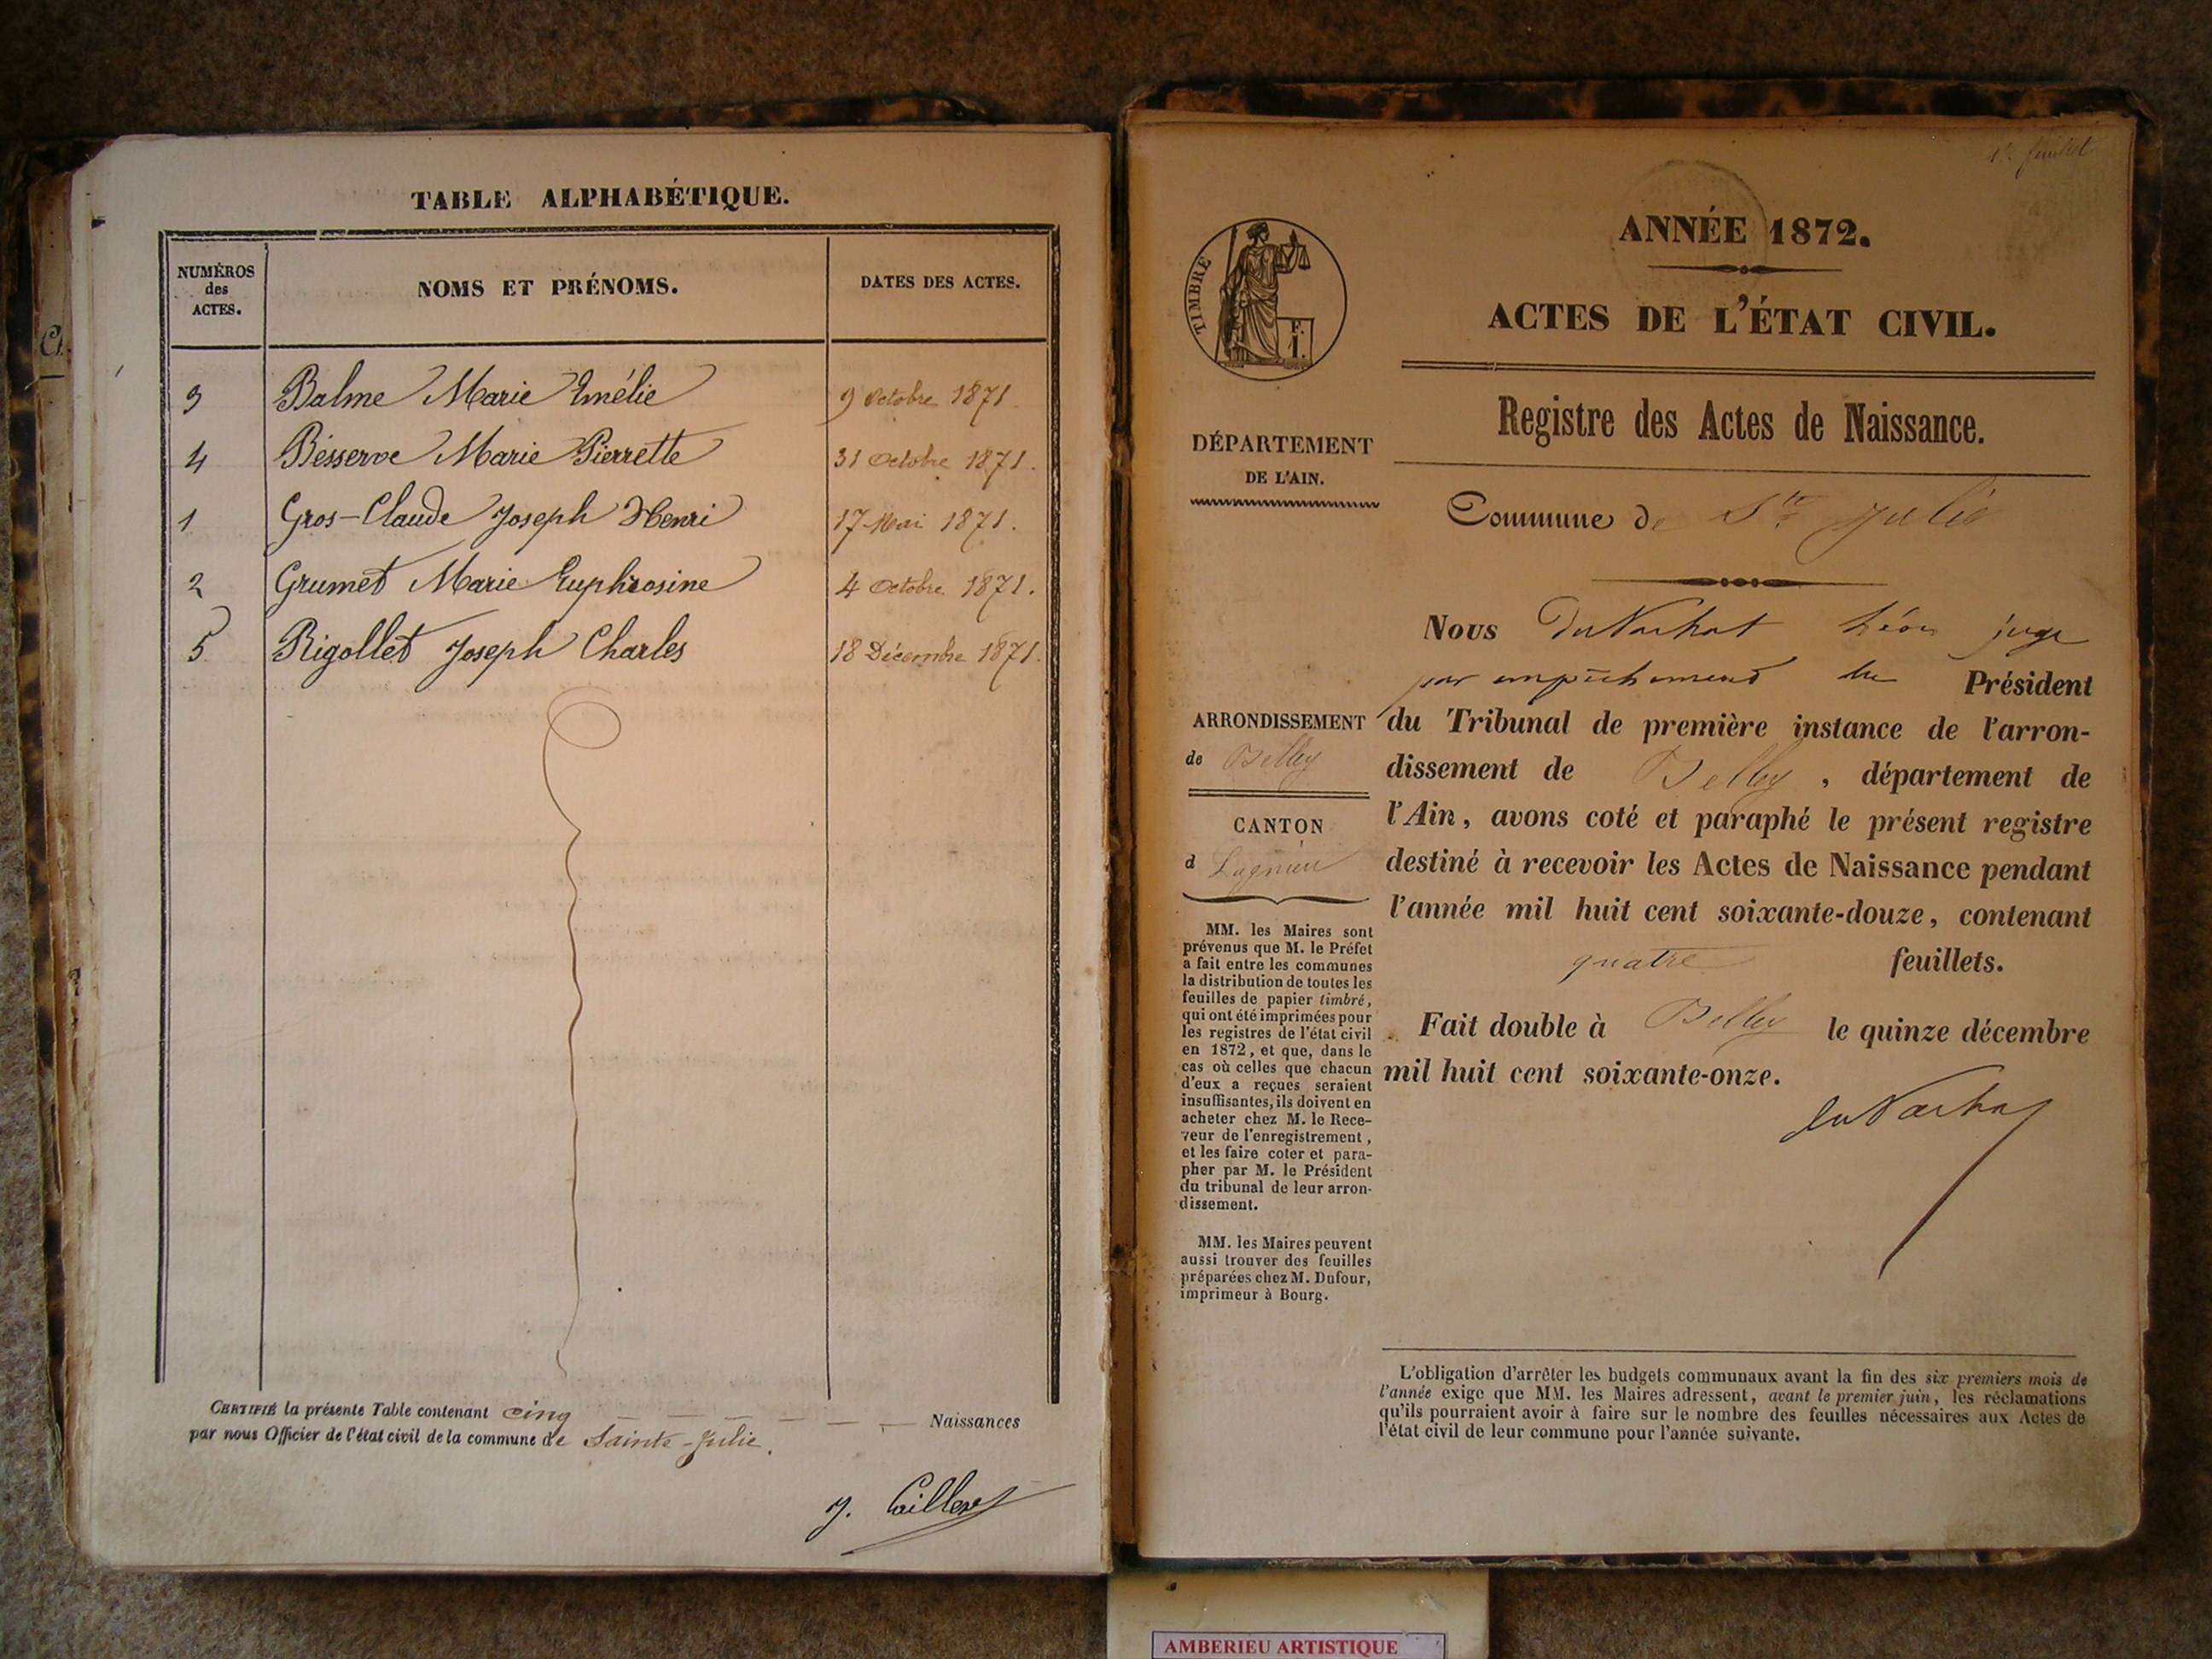 TABLE ALPHABÉTIQUE.
NUMÉROS des ACTES.
NOMS ET PRÉNOMS.
DATES DES ACTES.
3 Balme Marie Emélie 9 Octobre 1871
4 Bésserve Marie Pierrette 31 Octobre 1871.
1 Gros-Claude Joseph Henri 17 Mai 1871.
2 Grumet Marie Euphrosine 4 Octobre 1871.
5 Rigollet Joseph Charles 18 Décembre 1871.
CERTIFIÉ la présente Table contenant cinq Naissances
par nous Officier de l'état civil de la commune de Sainte-Julie.
1er feuillet
ANNÉE 1872.
ACTES DE L'ÉTAT CIVIL.
TIMBRE
F.
I.
Registre des Actes de Naissance.
DÉPARTEMENT
DE L'AIN.
Commune de Ste Julie
Nous Léon juge
par empêchement du Président
du Tribunal de première instance de l'arron-
dissement de Belley, département de
l'Ain, avons coté et paraphé le présent registre
destiné à recevoir les Actes de Naissance pendant
l'année mil huit cent soixante-douze, contenant
quatre feuillets.
Fait double à Belley le quinze décembre
mil huit cent soixante-onze.
ARRONDISSEMENT
de Belley
CANTON
d Lagnieu
MM. les Maires sont
prévenus que M. le Préfet
a fait entre les communes
la distribution de toutes les
feuilles de papier timbré,
qui ont été imprimées pour
les registres de l'état civil
en 1872, et que, dans le
cas où celles que chacun
d'eux a reçues seraient
insuffisantes, ils doivent en
acheter chez M. le Rece-
veur de l'enregistrement,
et les faire coter et para-
pher par M. le Président
du tribunal de leur arron-
dissement.
MM. les Maires peuvent
aussi trouver des feuilles
préparées chez M. Dufour,
imprimeur à Bourg.
L'obligation d'arrêter les budgets communaux avant la fin des six premiers mois de
l'année exige que MM. les Maires adressent, avant le premier juin, les réclamations
qu'ils pourraient avoir à faire sur le nombre des feuilles nécessaires aux Actes de
l'état civil de leur commune pour l'année suivante.
AMBERIEU ARTISTIQUE